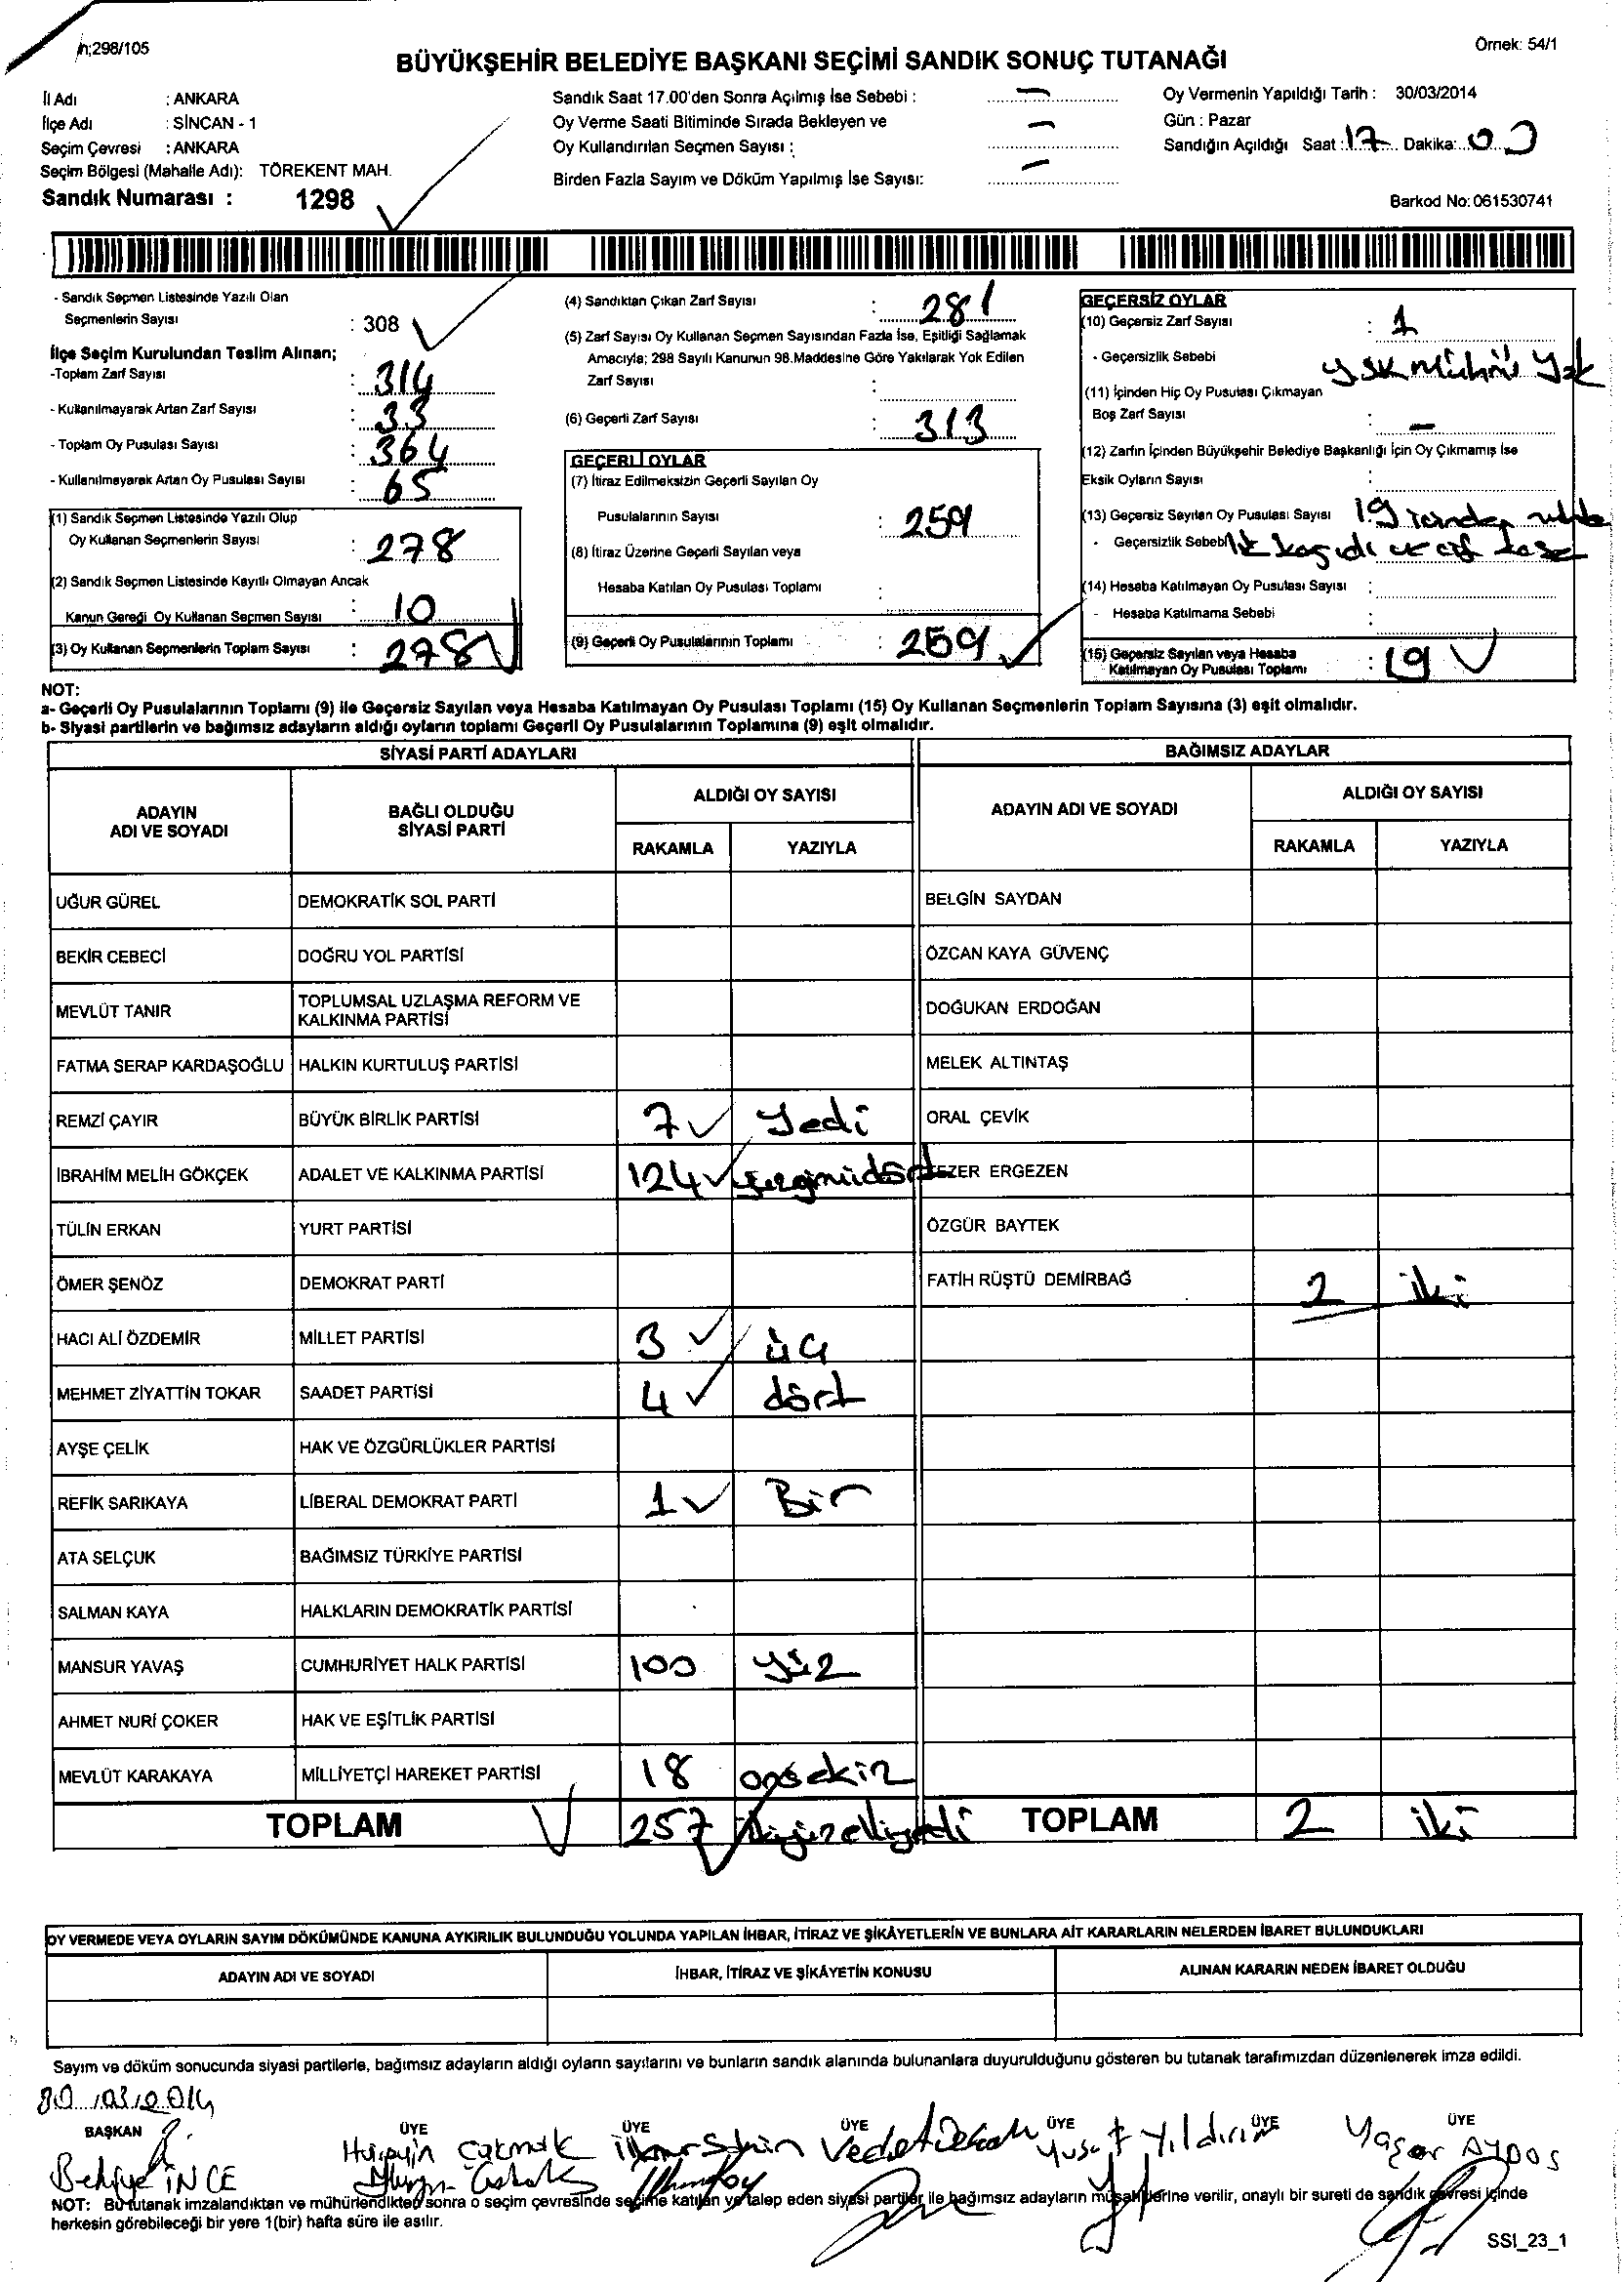 h;298/105
Örnek: 54/1
BÜYÜKŞEHİR BELEDİYE BAŞKANI SEÇİMİ SANDIK SONUÇ TUTANAĞI
İl Adı : ANKARA
İlçe Adı : SİNCAN - 1
Seçim Çevresi : ANKARA
Seçim Bölgesi (Mahalle Adı): TÖREKENT MAH.
Sandık Numarası : 1298
Sandık Saat 17.00'den Sonra Açılmış İse Sebebi : –
Oy Verme Saati Bitiminde Sırada Bekleyen ve
Oy Kullandırılan Seçmen Sayısı : –
Birden Fazla Sayım ve Döküm Yapılmış İse Sayısı: –
Oy Vermenin Yapıldığı Tarih : 30/03/2014
Gün : Pazar
Sandığın Açıldığı Saat : 17 Dakika: 00
Barkod No: 061530741
- Sandık Seçmen Listesinde Yazılı Olan
Seçmenlerin Sayısı : 308
İlçe Seçim Kurulundan Teslim Alınan;
-Toplam Zarf Sayısı : 314
- Kullanılmayarak Artan Zarf Sayısı : 33
- Toplam Oy Pusulası Sayısı : 364
- Kullanılmayarak Artan Oy Pusulası Sayısı : 65
(1) Sandık Seçmen Listesinde Yazılı Olup
Oy Kullanan Seçmenlerin Sayısı : 278
(2) Sandık Seçmen Listesinde Kayıtlı Olmayan Ancak
Kanun Gereği Oy Kullanan Seçmen Sayısı : 10
(3) Oy Kullanan Seçmenlerin Toplam Sayısı : 278
(4) Sandıktan Çıkan Zarf Sayısı : 281
(5) Zarf Sayısı Oy Kullanan Seçmen Sayısından Fazla İse, Eşitliği Sağlamak
Amacıyla; 298 Sayılı Kanunun 98.Maddesine Göre Yakılarak Yok Edilen
Zarf Sayısı :
(6) Geçerli Zarf Sayısı : 313
GEÇERLİ OYLAR
(7) İtiraz Edilmeksizin Geçerli Sayılan Oy
Pusulalarının Sayısı : 259
(8) İtiraz Üzerine Geçerli Sayılan veya
Hesaba Katılan Oy Pusulası Toplamı :
(9) Geçerli Oy Pusulalarının Toplamı : 259
GEÇERSİZ OYLAR
(10) Geçersiz Zarf Sayısı : 1
- Geçersizlik Sebebi YSK mührü Yok
(11) İçinden Hiç Oy Pusulası Çıkmayan
Boş Zarf Sayısı : –
(12) Zarfın İçinden Büyükşehir Belediye Başkanlığı İçin Oy Çıkmamış İse
Eksik Oyların Sayısı :
(13) Geçersiz Sayılan Oy Pusulası Sayısı 19 icinden
- Geçersizlik Sebebi kagıdı
(14) Hesaba Katılmayan Oy Pusulası Sayısı :
- Hesaba Katılmama Sebebi :
(15) Geçersiz Sayılan veya Hesaba
Katılmayan Oy Pusulası Toplamı : 19
NOT:
a- Geçerli Oy Pusulalarının Toplamı (9) ile Geçersiz Sayılan veya Hesaba Katılmayan Oy Pusulası Toplamı (15) Oy Kullanan Seçmenlerin Toplam Sayısına (3) eşit olmalıdır.
b- Siyasi partilerin ve bağımsız adayların aldığı oyların toplamı Geçerli Oy Pusulalarının Toplamına (9) eşit olmalıdır.
SİYASİ PARTİ ADAYLARI
ADAYIN
ADI VE SOYADI
BAĞLI OLDUĞU
SİYASİ PARTİ
ALDIĞI OY SAYISI
RAKAMLA YAZIYLA
UĞUR GÜREL DEMOKRATİK SOL PARTİ
BEKİR CEBECİ DOĞRU YOL PARTİSİ
MEVLÜT TANIR TOPLUMSAL UZLAŞMA REFORM VE
KALKINMA PARTİSİ
FATMA SERAP KARDAŞOĞLU HALKIN KURTULUŞ PARTİSİ
REMZİ ÇAYIR BÜYÜK BİRLİK PARTİSİ 7 Yedi
İBRAHİM MELİH GÖKÇEK ADALET VE KALKINMA PARTİSİ 124
TÜLİN ERKAN YURT PARTİSİ
ÖMER ŞENÖZ DEMOKRAT PARTİ
HACI ALİ ÖZDEMİR MİLLET PARTİSİ 3 üç
MEHMET ZİYATTİN TOKAR SAADET PARTİSİ 4 dört
AYŞE ÇELİK HAK VE ÖZGÜRLÜKLER PARTİSİ
REFİK SARIKAYA LİBERAL DEMOKRAT PARTİ 1 Bir
ATA SELÇUK BAĞIMSIZ TÜRKİYE PARTİSİ
SALMAN KAYA HALKLARIN DEMOKRATİK PARTİSİ
MANSUR YAVAŞ CUMHURİYET HALK PARTİSİ 100 yüz
AHMET NURİ ÇOKER HAK VE EŞİTLİK PARTİSİ
MEVLÜT KARAKAYA MİLLİYETÇİ HAREKET PARTİSİ 18 onsekiz
TOPLAM 257 ikiyüzelliyedi
BAĞIMSIZ ADAYLAR
ADAYIN ADI VE SOYADI
ALDIĞI OY SAYISI
RAKAMLA YAZIYLA
BELGİN SAYDAN
ÖZCAN KAYA GÜVENÇ
DOĞUKAN ERDOĞAN
MELEK ALTINTAŞ
ORAL ÇEVİK
ERGEZEN
ÖZGÜR BAYTEK
FATİH RÜŞTÜ DEMİRBAĞ 2 iki
TOPLAM 2 iki
OY VERMEDE VEYA OYLARIN SAYIM DÖKÜMÜNDE KANUNA AYKIRILIK BULUNDUĞU YOLUNDA YAPILAN İHBAR, İTİRAZ VE ŞİKÂYETLERİN VE BUNLARA AİT KARARLARIN NELERDEN İBARET BULUNDUKLARI
ADAYIN ADI VE SOYADI İHBAR, İTİRAZ VE ŞİKÂYETİN KONUSU ALINAN KARARIN NEDEN İBARET OLDUĞU
Sayım ve döküm sonucunda siyasi partilerle, bağımsız adayların aldığı oyların sayılarını ve bunların sandık alanında bulunanlara duyurulduğunu gösteren bu tutanak tarafımızdan düzenlenerek imza edildi.
30/03/2014
BAŞKAN ÜYE ÜYE ÜYE ÜYE ÜYE ÜYE
Behiye İNCE Hüseyin Çakmak Vedat Yusuf Yıldırım Yaşar AYDOS
NOT: Bu tutanak imzalandıktan ve mühürlendikten sonra o seçim çevresinde seçime katılan ve talep eden siyasi partiler ile bağımsız adayların müşahitlerine verilir, onaylı bir sureti de sandık çevresi içinde
herkesin görebileceği bir yere 1(bir) hafta süre ile asılır.
SSI_23_1